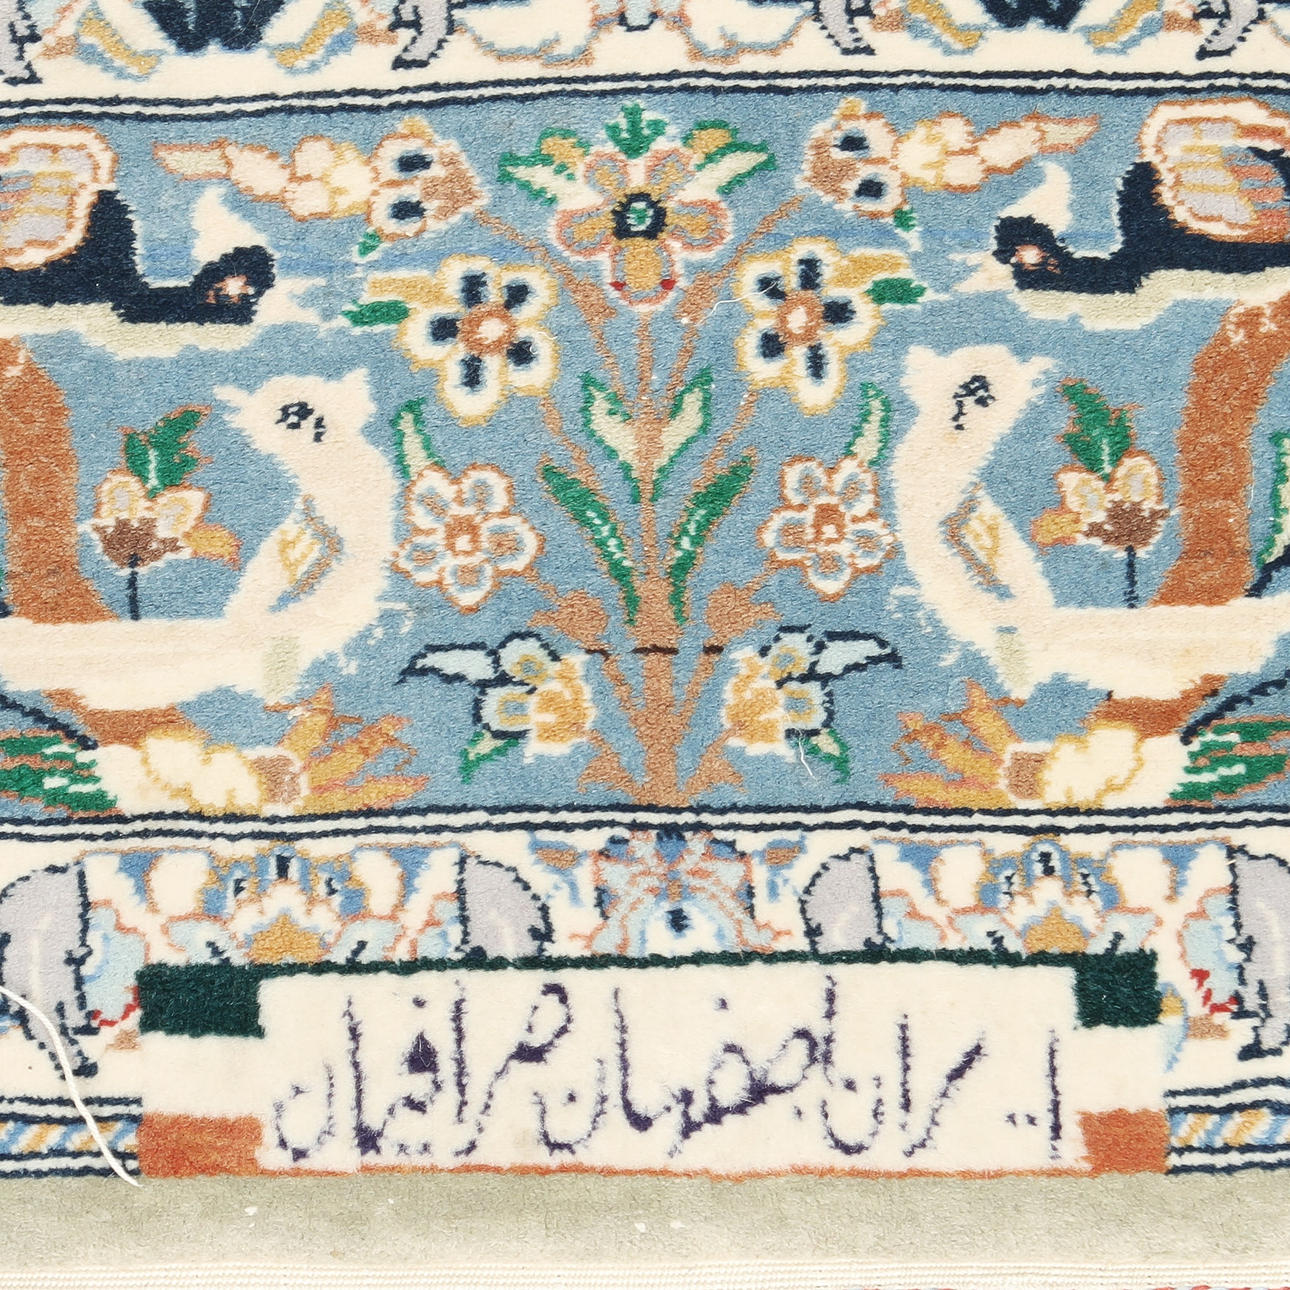 ایران اصفهان صرافیان